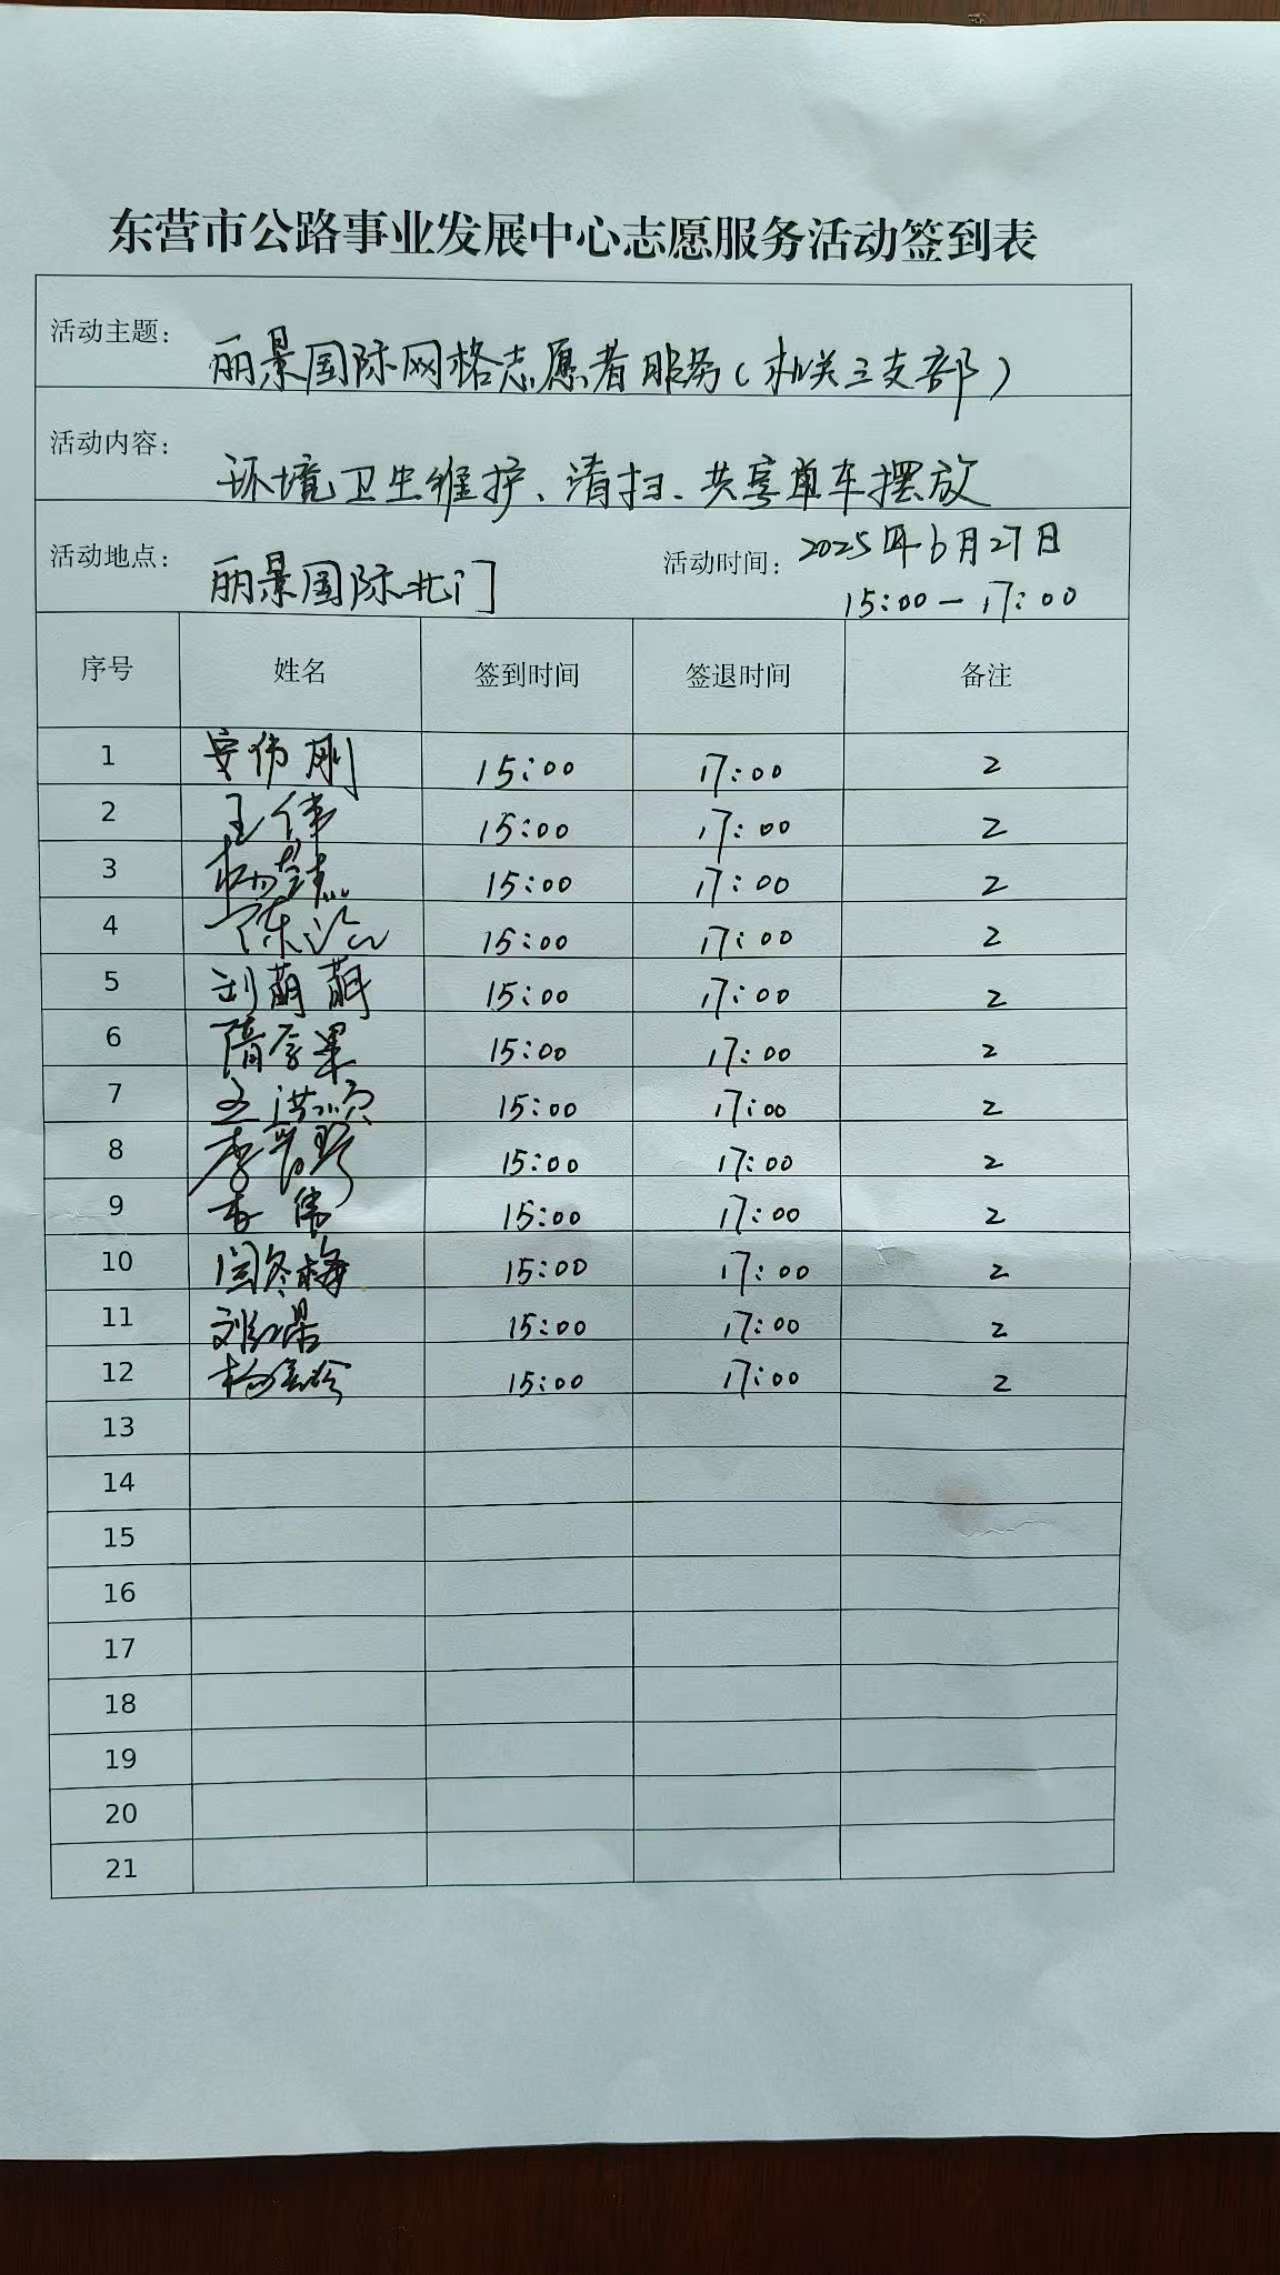 东营市公路事业发展中心志愿服务活动签到表
活动主题： 丽景国际网格志愿者服务（机关三支部）
活动内容： 环境卫生维护、清扫、共享单车摆放
活动地点： 丽景国际北门 活动时间： 2025年6月27日
15:00－17:00
序号 姓名 签到时间 签退时间 备注
1 安伟刚 15:00 17:00 2
2 王伟 15:00 17:00 2
3 杨 15:00 17:00 2
4 陈 15:00 17:00 2
5 刘萌萌 15:00 17:00 2
6 隋 15:00 17:00 2
7 王洪顺 15:00 17:00 2
8 李 15:00 17:00 2
9 李伟 15:00 17:00 2
10 闫冬梅 15:00 17:00 2
11 刘红 15:00 17:00 2
12 杨 15:00 17:00 2
13
14
15
16
17
18
19
20
21